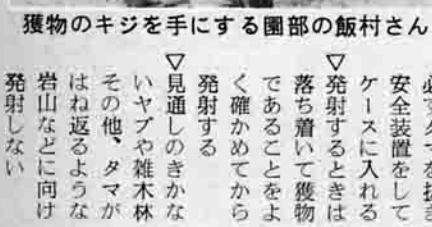 獲物のキジを手にする園部の飯村さん
必ずタマを抜き
安全装置をして
ケースに入れる
▽発射するときは
落ち着いて獲物
であることをよ
く確かめてから
発射する
▽見通しのきかな
いヤブや雑木林
その他、タマが
はね返るような
岩山などに向け
発射しない